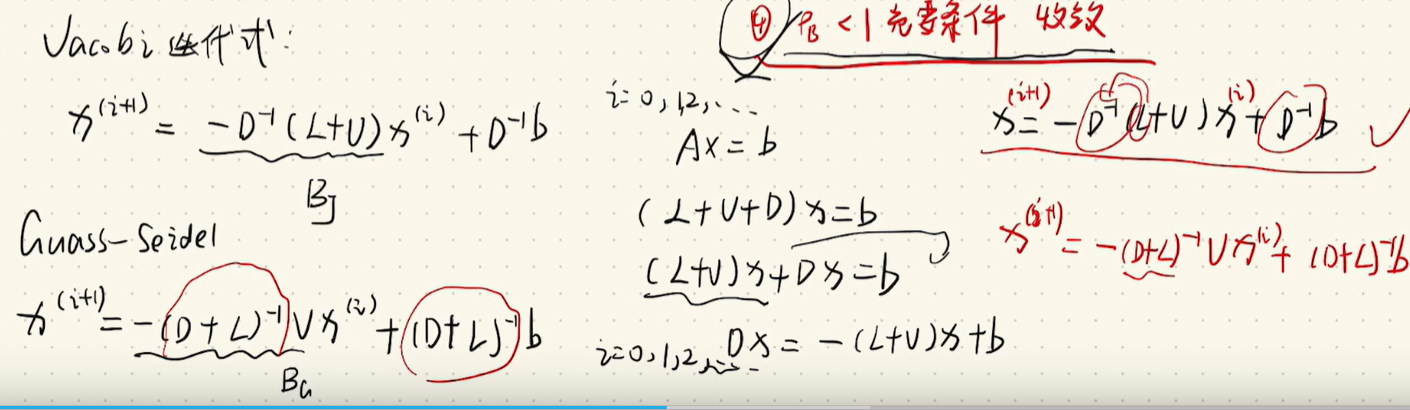 Jacobi 迭代式:
x^(i+1) = -D^-1 (L+U) x^(i) + D^-1 b
B_J
Guass-Seidel
x^(i+1) = -(D+L)^-1 U x^(i) + (D+L)^-1 b
B_G
i=0,1,2,...
Ax=b
(L+U+D)x=b
(L+U)x+Dx=b
i=0,1,2,... Dx=-(L+U)x+b
④ ρ_B<1 充要条件 收敛
x^(i+1) = -D^-1 (L+U) x^(i) + D^-1 b ✓
x^(i+1) = -(D+L)^-1 U x^(i) + (D+L)^-1 b